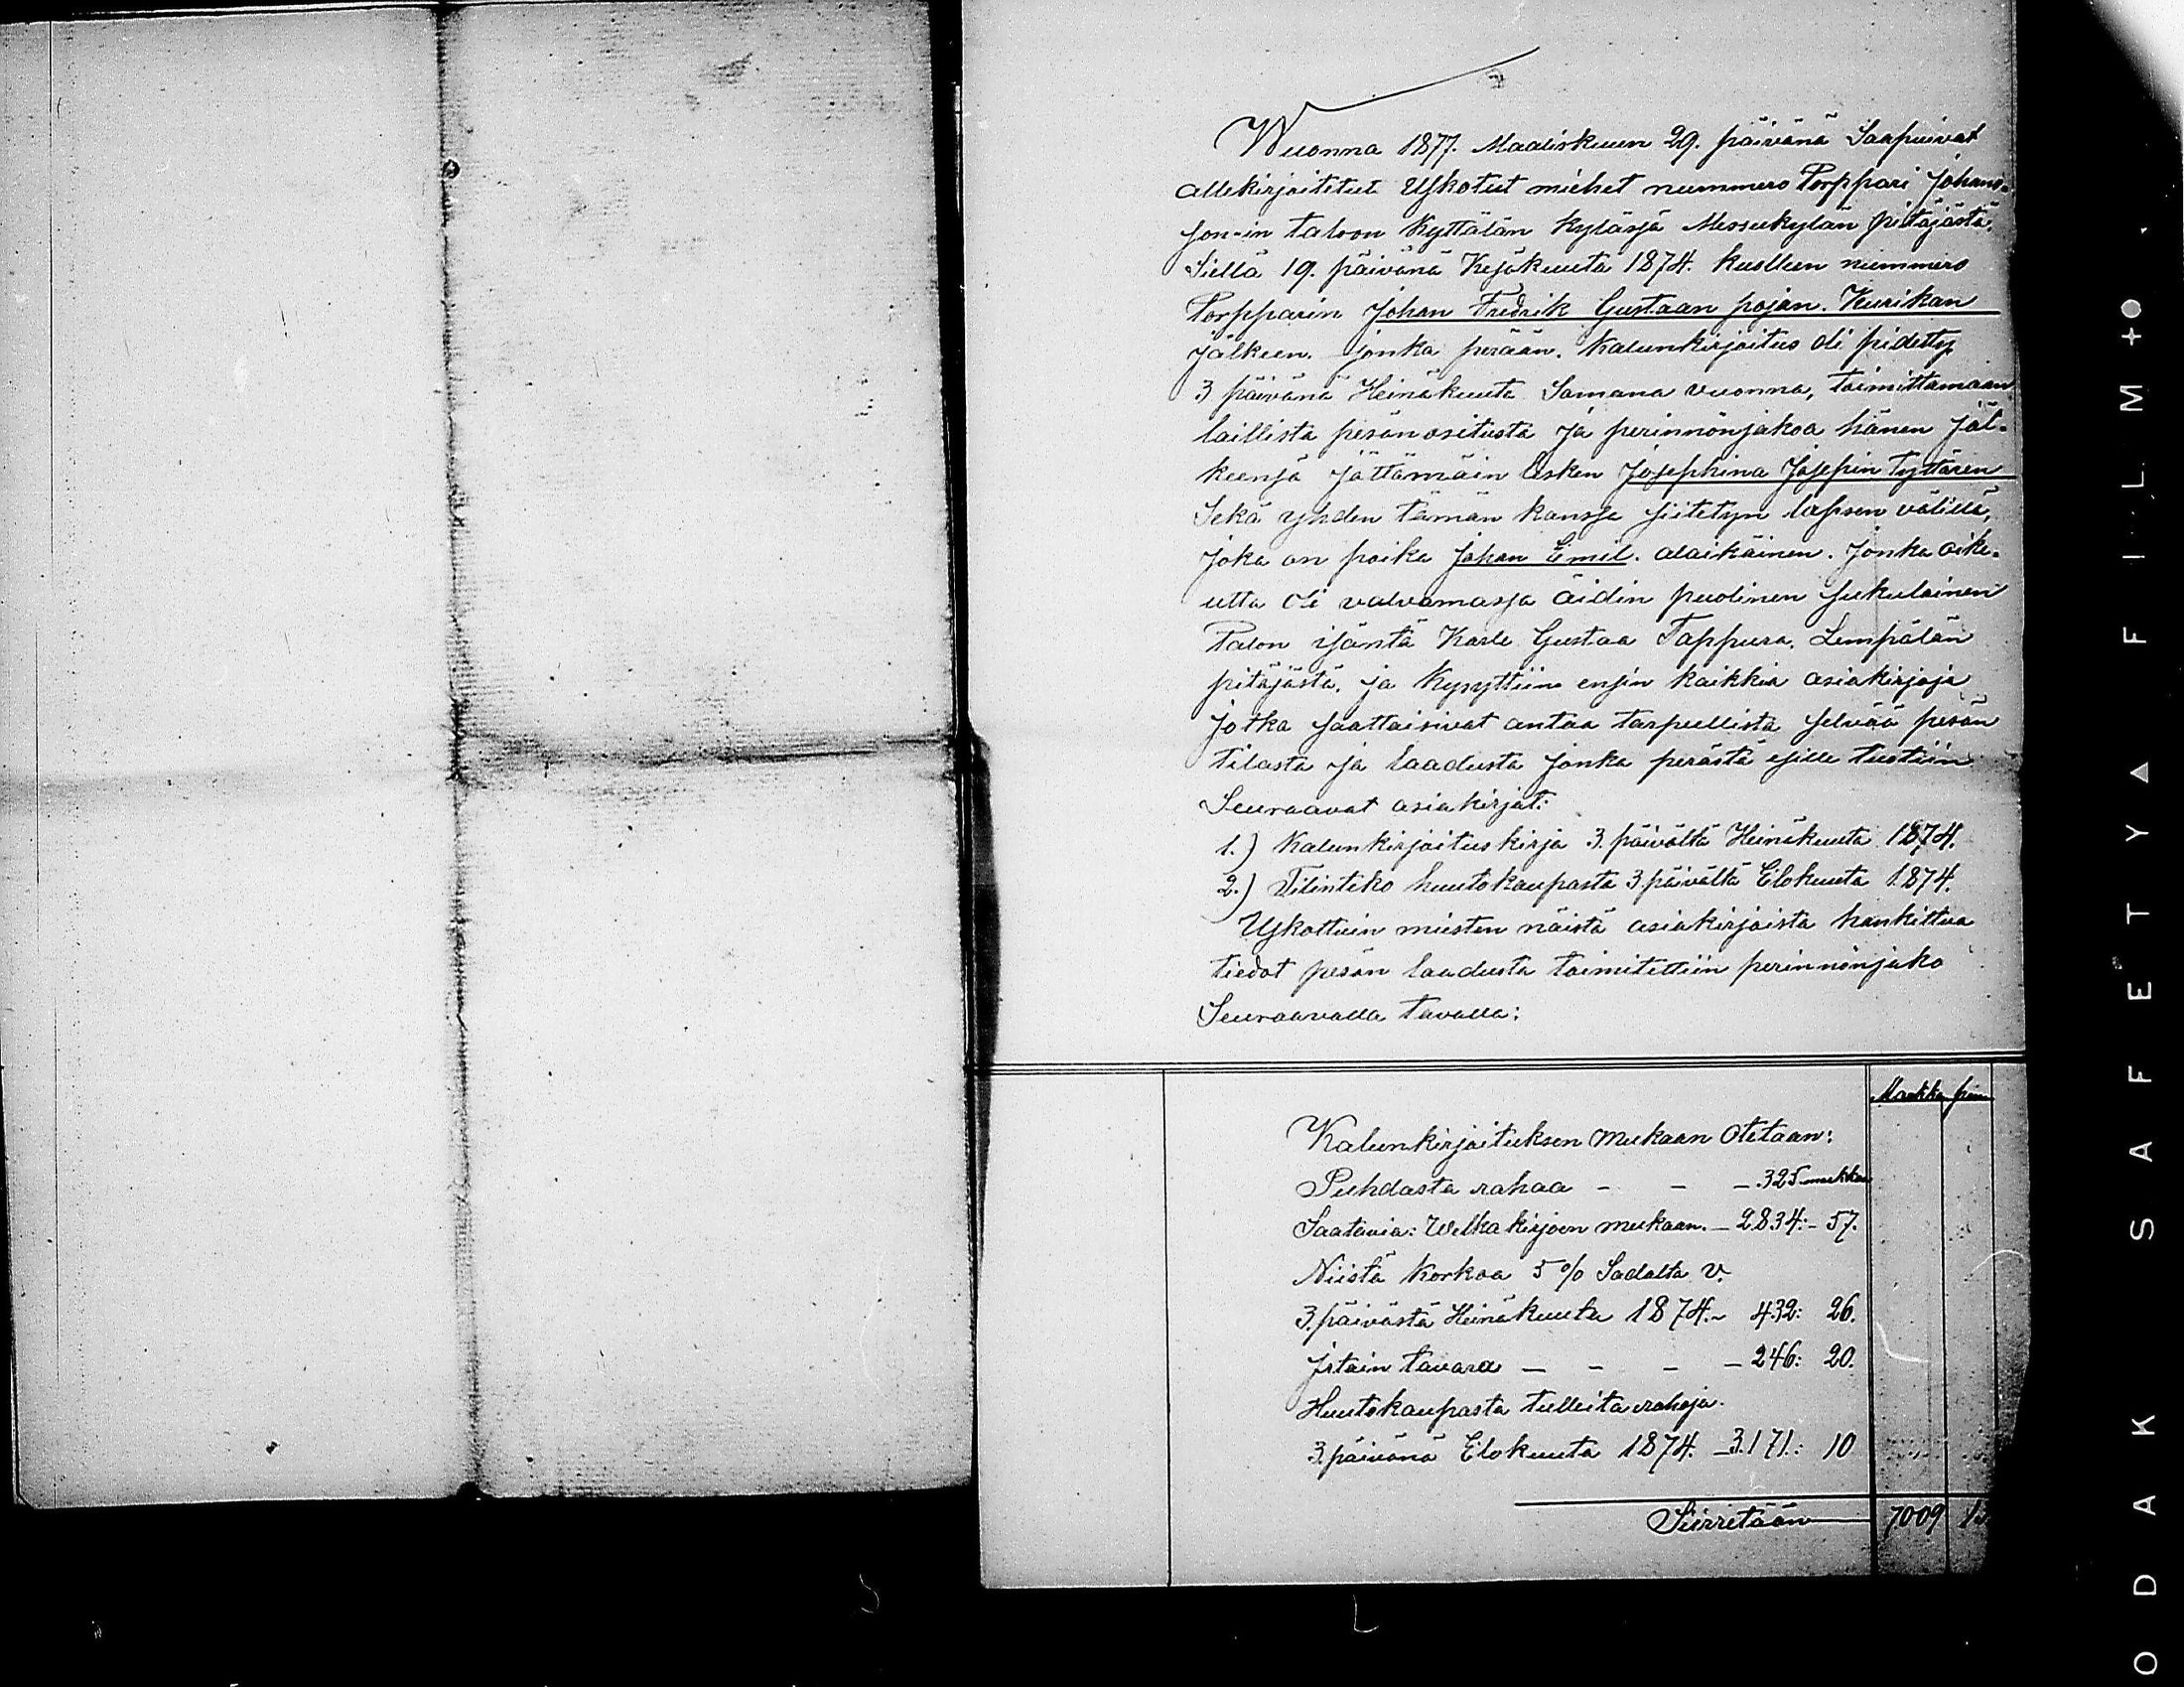 Wuonna 1877. Maaliskuun 29. päivänä Saapuivat
allekirjoitetut Uskotut miehet nummero Torppari Johans-
son-in taloon Kyttälän Kylässä Messukylän pitäjästä.
Siellä 19. päivänä Kesäkuuta 1874. kuolleen nummero
Torpparin Johan Fredrik Gustaan pojan. Keurikan
jälkeen. jonka perään. Kalunkirjoitus oli pidetty
3 päivänä Heinäkuuta Samana vuonna, toimittamaan
laillista pesänositusta ja perinnönjakoa hänen jäl-
keensä jättämäin lesken Josephina Josepin Tyttären
Sekä yhden tämän kanssa siitetyn lapsen välillä,
joka on poika Johan Emil. alaikäinen. Jonka oike-
utta oli valvomassa äidin puolinen sukulainen
Talon isäntä Karle Gustaa Tappura, Lempälän
pitäjästä, ja Kysyttiin ensin kaikkia asiakirjoja
jotka saattaisivat antaa tarpeellista selvää pesän
tilasta ja laadusta jonka perästä esille tuotiin
Seuraavat asiakirjat:
1.) Kalunkirjoitus kirja 3. päivältä Heinäkuuta 1874.
2.) Tilinteko huutokaupasta 3 päivältä Elokuuta 1874.
Uskottuin miesten näistä asiakirjoista hankittua
tiedot pesän laadusta toimitettiin perinnönjako
Seuraavalla tavalla:
Markka pen
Kalunkirjoituksen mukaan Otetaan:
Puhdasta rahaa - - - 325 markkaa
Saatavia: Welkakirjoen mukaan. - 2834:- 57.
Niistä Korkoa 5 % Sadalta v.
3. päivästä Heinäkuuta 1874.- 432: 26.
Jrtain tavara - - - - 246: 20.
Huutokaupasta tulleita rahoja.
3. päivänä Elokuuta 1874. - 3.171: 10
Siirretään 7009
KODAK SAFETY FILM